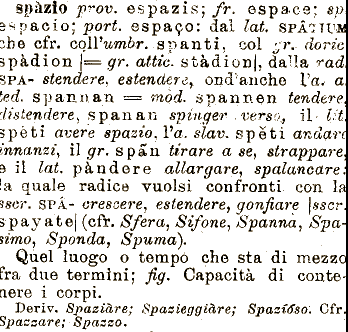 spàzio prov. espazis; fr. espace; sp
espacio; port. espaço: dal lat. SPĂTIUM
che cfr. coll'umbr. spanti, col gr. doric
spàdion |= gr. attic. stàdion|, dalla rad.
SPA- stendere, estendere, ond'anche l'a. a
ted. spannan = mod. spannen tendere,
distendere, spanan spinger verso, il lit.
spèti avere spazio, l'a. slav. spĕti andare
innanzi, il gr. spãn tirare a se, strappare,
e il lat. pàndere allargare, spalancare:
la quale radice vuolsi confronti con la
sscr. SPÂ- crescere, estendere, gonfiare |sscr.
spayate| (cfr. Sfera, Sifone, Spanna, Spa-
simo, Sponda, Spuma).
Quel luogo o tempo che sta di mezzo
fra due termini; fig. Capacità di conte-
nere i corpi.
Deriv. Spaziàre; Spazieggiàre; Spazióso. Cfr.
Spazzare; Spazzo.